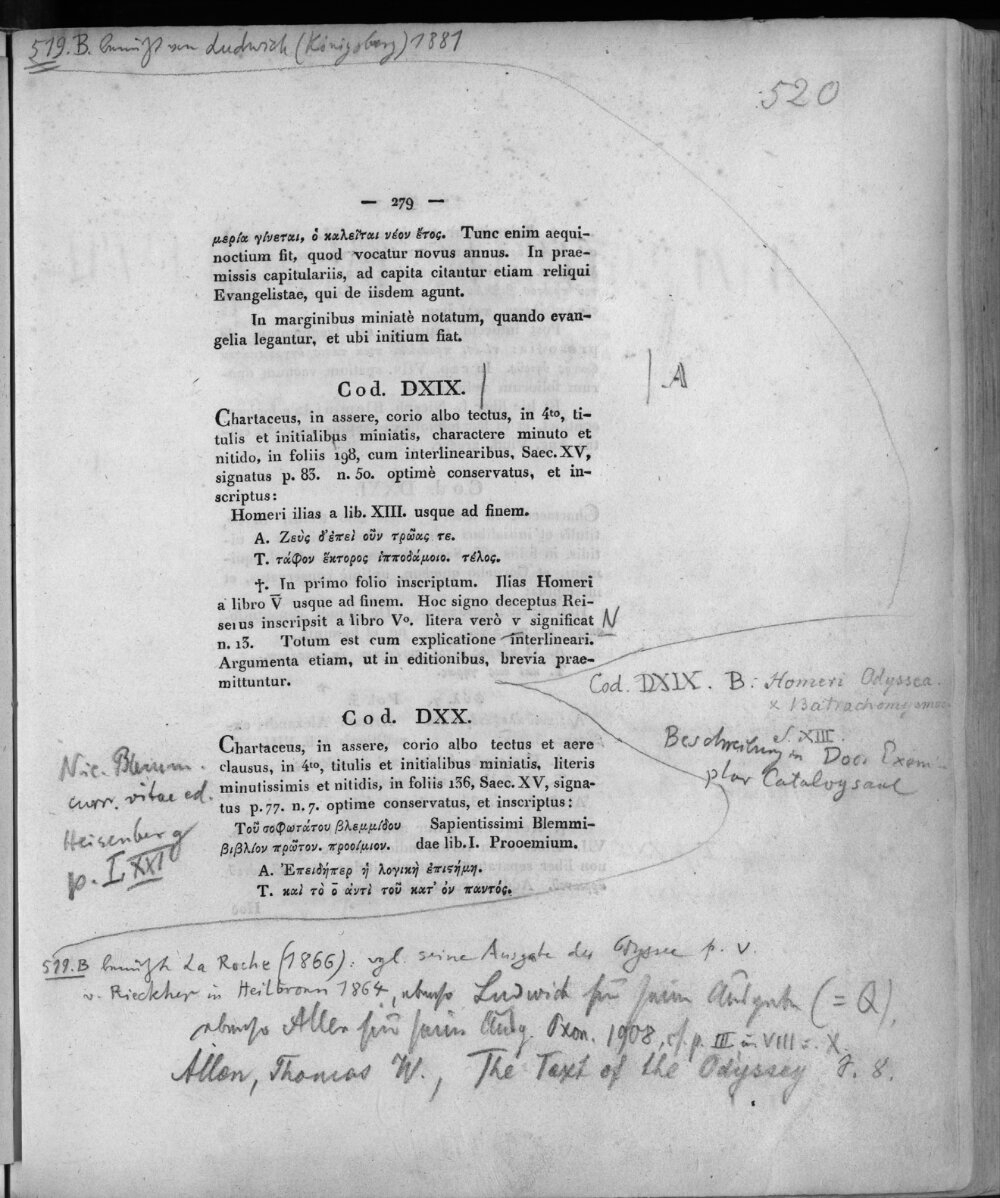 519. B. benützt von Ludwich (Königsberg) 1881
520
— 279 —
μερία γίνεται, ὁ καλεῖται νέον ἔτος. Tunc enim aequi-
noctium fit, quod vocatur novus annus. In prae-
missis capitulariis, ad capita citantur etiam reliqui
Evangelistae, qui de iisdem agunt.
In marginibus miniatè notatum, quando evan-
gelia legantur, et ubi initium fiat.
Cod. DXIX.
A
Chartaceus, in assere, corio albo tectus, in 4to, ti-
tulis et initialibus miniatis, charactere minuto et
nitido, in foliis 198, cum interlinearibus, Saec. XV,
signatus p. 83. n. 50. optimè conservatus, et in-
scriptus:
Homeri ilias a lib. XIII. usque ad finem.
A. Ζεὺς δ'ἐπεὶ οὖν τρῶας τε.
T. τάφον ἕκτορος ἱπποδάμοιο. τέλος.
†. In primo folio inscriptum. Ilias Homeri
a libro V̅ usque ad finem. Hoc signo deceptus Rei-
serus inscripsit a libro Vo. litera verò v significat N
n. 13. Totum est cum explicatione interlineari.
Argumenta etiam, ut in editionibus, brevia prae-
mittuntur.
Cod. DXIX. B: Homeri Odyssea.
s. XIII.
Beschreibung in Doos Exem-
plar Catalogsaal
Cod. DXX.
Chartaceus, in assere, corio albo tectus et aere
clausus, in 4to, titulis et initialibus miniatis, literis
minutissimis et nitidis, in foliis 136, Saec. XV, signa-
tus p. 77. n. 7. optime conservatus, et inscriptus:
Τοῦ σοφωτάτου βλεμμίδου Sapientissimi Blemmi-
βιβλίον πρῶτον. προοίμιον. dae lib. I. Prooemium.
A. Ἐπειδήπερ ἡ λογικὴ ἐπιστήμη.
T. καὶ τὸ ὅ ἀντὶ τοῦ κατ' ὃν παντός.
Nic. Blemm.
curr. vitae ed.
Heisenberg
p. LXXI
519. B benützt La Roche (1866): vgl. seine Ausgabe der Odyssee p. V.
v. Rieckher in Heilbronn 1864, ebenso Ludwich für seine Ausgabe (= Q),
ebenso Allen für seine Ausg. Oxon. 1908, cf. p. III u. VIII u. X.
Allen, Thomas W., The Text of the Odyssey S. 8.